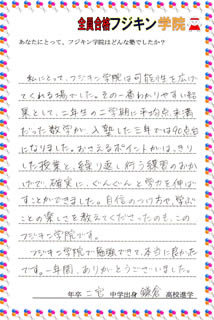 全員合格フジキン学院
あなたにとって、フジキン学院はどんな塾でしたか？
私にとって、フジキン学院は可能性を広げ
てくれる場でした。その一番わかりやすい結
果として、二年生の二学期に平均点未満
だった数学が、入塾した三年では90点台
になりました。おさえるポイントがはっきり
した授業と、繰り返し行う練習のおか
げで、確実に、ぐんぐんと学力を伸ばす
ことができました。自信のつけ方や、学ぶ
ことの楽しさを教えてくださったのも、この
フジキン学院です。
フジキン学院で勉強できて、本当に良かった
です。一年間、ありがとうございました。
年卒 二宮 中学出身 鎌倉 高校進学